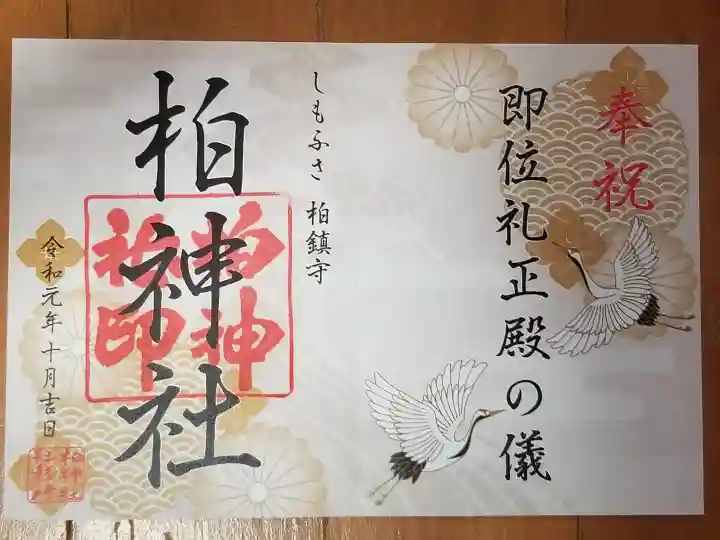 奉祝
即位礼正殿の儀
しもふさ 柏鎮守
柏神社
柏神
社印
令和元年十月吉日
柏神社